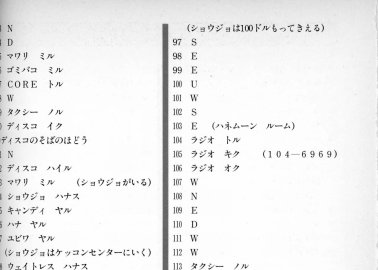 3 N
4 D
5 マワリ ミル
6 ゴミバコ ミル
7 CORE トル
8 W
9 タクシー ノル
0 ディスコ イク
ディスコのそばのほどう
1 N
2 ディスコ ハイル
3 マワリ ミル (ショウジョがいる)
4 ショウジョ ハナス
5 キャンディ ヤル
6 ハナ ヤル
7 ユビワ ヤル
(ショウジョはケッコンセンターにいく)
8 ウェイトレス ハナス
(ショウジョは100ドルもってきえる)
97 S
98 E
99 E
100 U
101 W
102 S
103 E (ハネムーン ルーム)
104 ラジオ トル
105 ラジオ キク (104―6969)
106 ラジオ オク
107 W
108 N
109 E
110 D
111 W
112 W
113 タクシー ノル